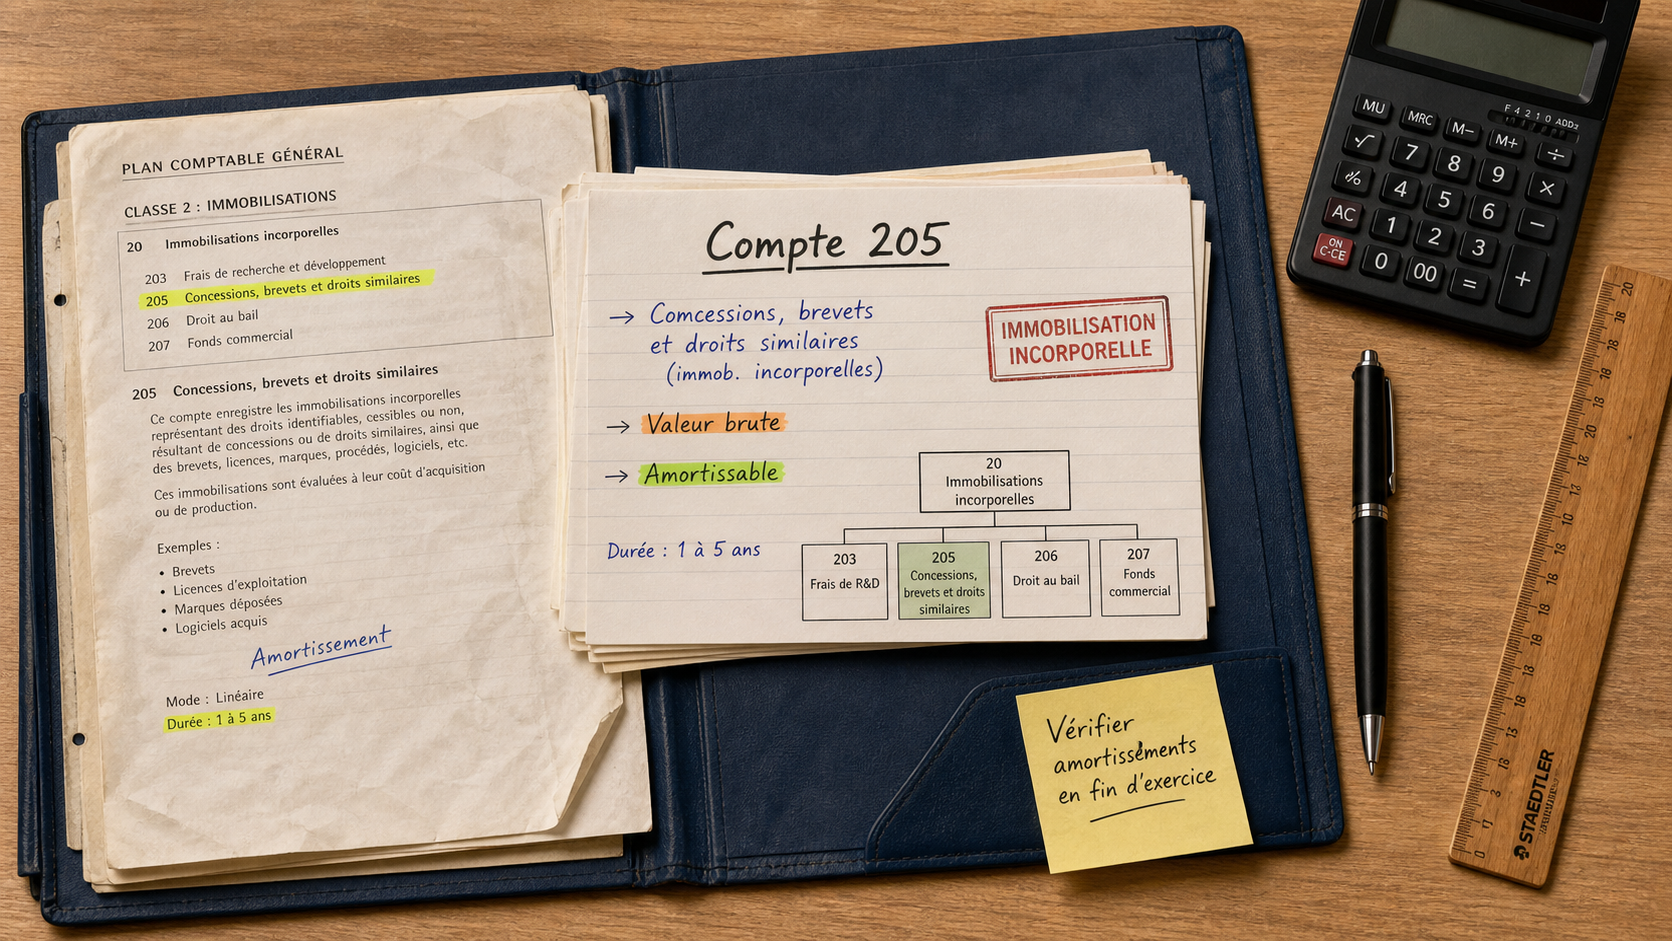 PLAN COMPTABLE GÉNÉRAL
CLASSE 2 : IMMOBILISATIONS
20 Immobilisations incorporelles
203 Frais de recherche et développement
205 Concessions, brevets et droits similaires
206 Droit au bail
207 Fonds commercial
205 Concessions, brevets et droits similaires
Ce compte enregistre les immobilisations incorporelles
représentant des droits identifiables, cessibles ou non,
résultant de concessions ou de droits similaires, ainsi que
des brevets, licences, marques, procédés, logiciels, etc.
Ces immobilisations sont évaluées à leur coût d'acquisition
ou de production.
Exemples :
• Brevets
• Licences d'exploitation
• Marques déposées
• Logiciels acquis
Amortissement
Mode : Linéaire
Durée : 1 à 5 ans
Compte 205
→ Comcessions, brevets
et droits similaires
(immob. incorporelles)
IMMOBILISATION
INCORPORELLE
→ Valeur brute
→ Amortissable
Durée : 1 à 5 ans
20
Immobilisations
incorporelles
203
Frais de R&D
205
Concessions,
brevets et droits
similaires
206
Droit au bail
207
Fonds
commercial
Vérifier
amortissements
en fin d'exercice
F 4 2 1 0 ADD2
MU MRC M− M+ ÷
√ 7 8 9 ×
% 4 5 6 −
AC 1 2 3 +
ON
C·CE 0 00 =
STAEDTLER